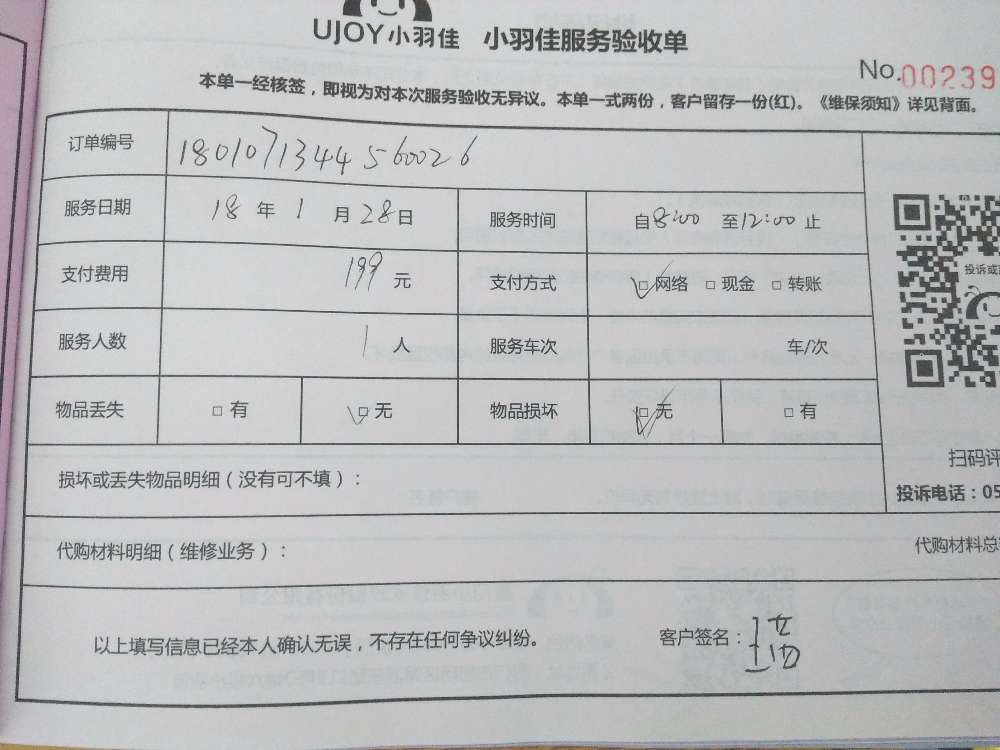 UJOY小羽佳 小羽佳服务验收单
No.00239
本单一经核签，即视为对本次服务验收无异议。本单一式两份，客户留存一份(红)。《维保须知》详见背面。
订单编号 1801071344560026
服务日期 18 年 1 月 28 日 服务时间 自8:00 至12:00 止
支付费用 199 元 支付方式 □网络 □现金 □转账
服务人数 1 人 服务车次 车/次
物品丢失 □有 □无 物品损坏 □无 □有
投诉或
扫码评
投诉电话：05
损坏或丢失物品明细（没有可不填）：
代购材料明细（维修业务）： 代购材料总
以上填写信息已经本人确认无误，不存在任何争议纠纷。 客户签名：